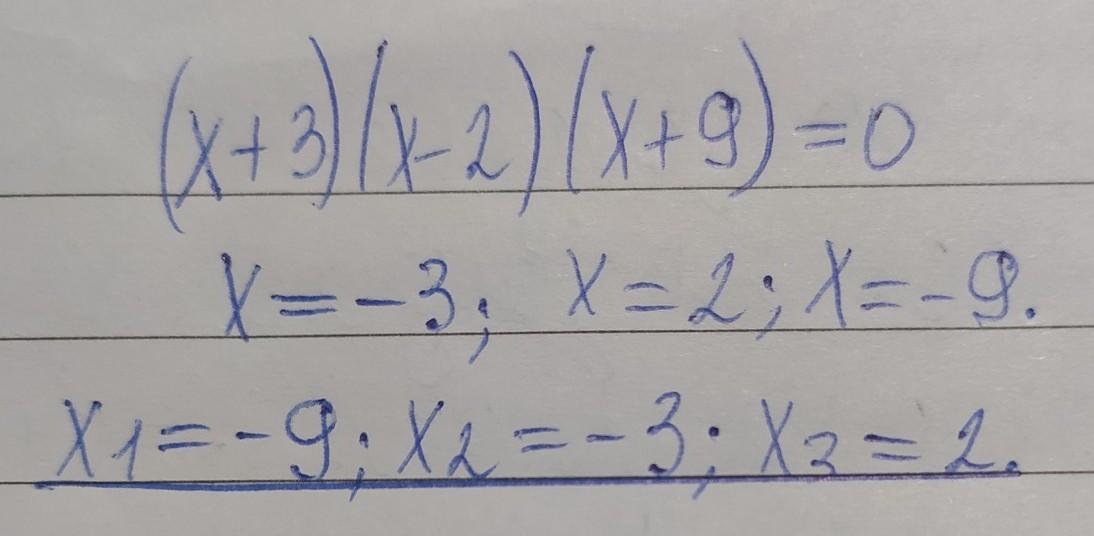 (x+3)(x-2)(x+9)=0
x=-3; x=2; x=-9.
x1=-9; x2=-3; x3=2.